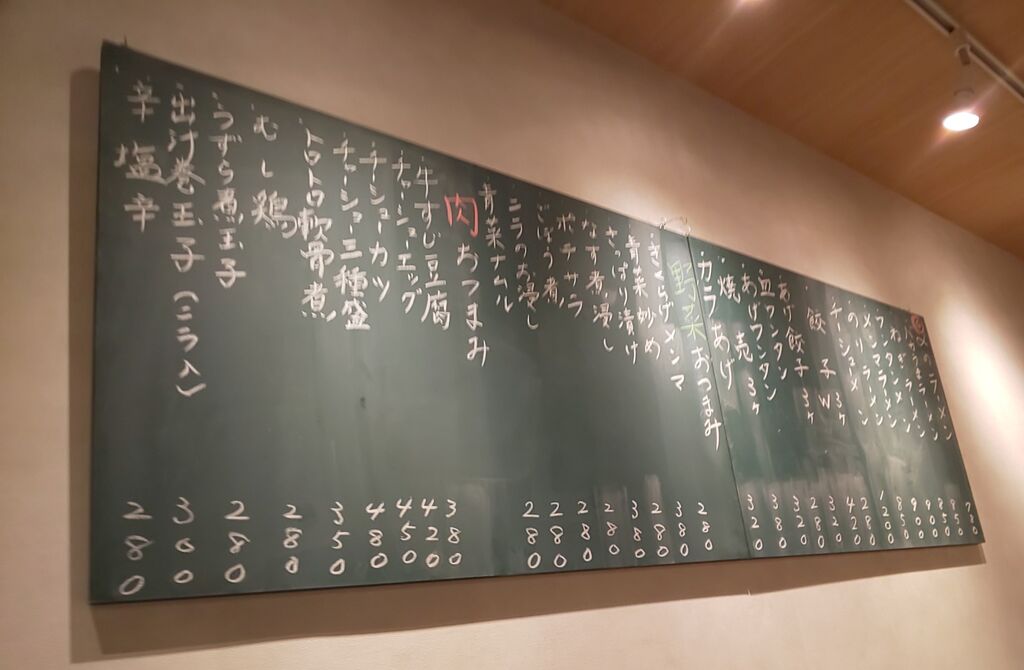 メンマラーメン 900
のりラーメン 850
餃子 W 420
餃子 3ヶ
あげ餃子 3ヶ 320
皿ワンタン 280
あげワンタン 320
焼売 3ヶ 380
カラあげ 320
野菜おつまみ
きくらげメンマ 280
青菜炒め 380
さっぱり漬け 280
なす煮浸し 380
ポテサラ 280
ごぼう煮 280
ニラのお浸し 280
青菜ナムル 280
肉おつまみ
牛すじ豆腐 380
チャーシューエッグ 420
チャーシューカツ 450
チャーシュー三種盛 480
トロトロ軟骨煮 350
むし鶏 280
うずら煮玉子 280
出汁巻玉子(ニラ入) 300
辛塩辛 280